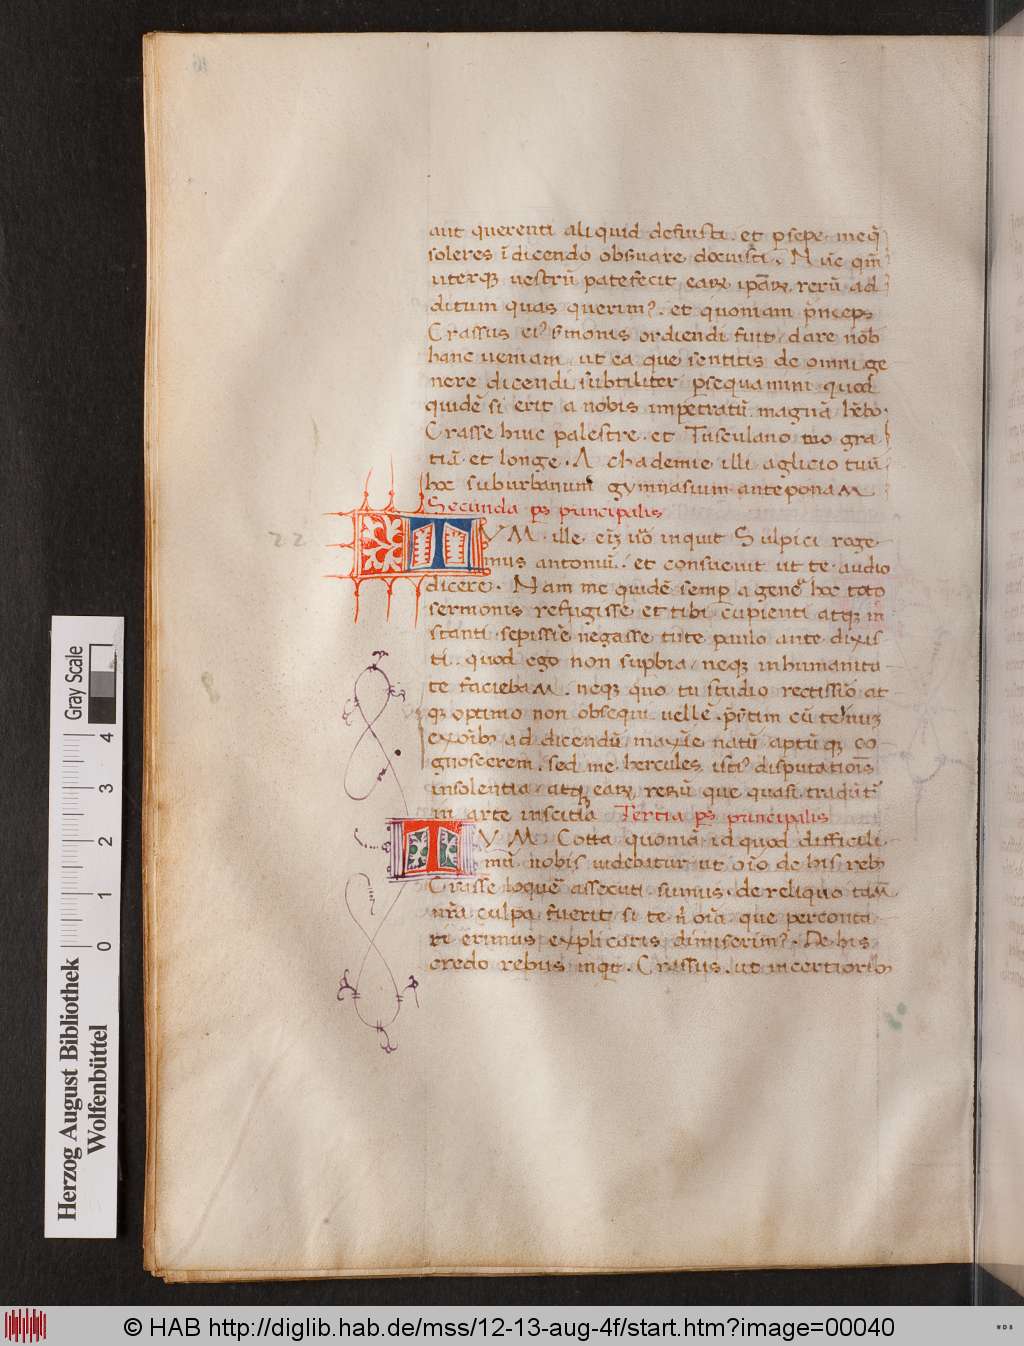 aut querenti aliquid defuisti . et psepe meq̃
soleres ĩ dicendo obs̃uare docuisti . Nũc qm̃
uterqꝫ uestrũ patefecit earꝝ ip̃arꝝ rerũ ad
ditum quas querimꝰ . et quoniam p̃nceps
Crassus eiꝰ s̃monis ordiendi fuit dare nob̃
hanc ueniam ut ea que sentitis de omni ge
nere dicendi subtiliter psequamini quod
quidẽ si erit a nobis impetratũ magnã hẽbo
Crasse huic palestre et Tusculano tuo gra
tiã et longe . Achademie illi aglicio tuũ
hoc suburbanum gymnasium anteponam
Secunda ps principalis
TVM ille . eiꝫ uõ inquit Sulpici roge
mus antoniũ . et consueuit ut te audio
dicere . Nam me quidẽ semp a genẽ hoc toto
sermonis refugisse et tibi cupienti atqꝫ in
stanti sepissie negasse tute paulo ante dixis
ti . quod ego non supbia neqꝫ inhumanita
te faciebam . neqꝫ quo tu studio rectissĩo at
qꝫ optimo non obsequi uelle p̃stim cũ te unũ
ex oĩbꝫ ad dicendũ maxĩe natũ aptũqꝫ co
gnoscerem . sed me hercules istiꝰ disputatiõis
insolentia atqꝫ earꝝ rerũ que quasi tradũtʳ
in arte inscitia Tertia ps principalis
TVM Cotta quoniã id quod difficili
mũ nobis uidebatur ut oĩo de his rebꝫ
Crasse loquẽ assecuti sumus . de reliquo tam̃
nr̃a culpa fuerit si te ñ oĩa que perconta
ri erimus explicatis dimiserimꝰ . De his
credo rebus inqt . Crassus . ut in certioribꝫ
22
Gray Scale
0 1 2 3 4
Herzog August Bibliothek
Wolfenbüttel
© HAB http://diglib.hab.de/mss/12-13-aug-4f/start.htm?image=00040